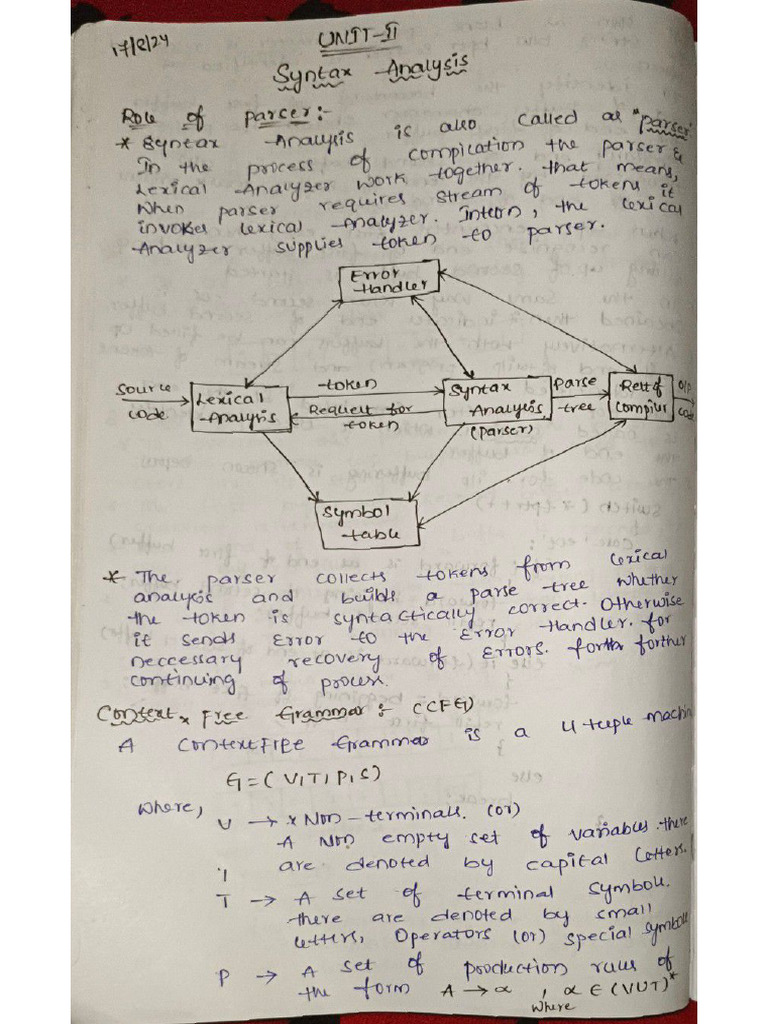 17/8/24
UNIT-II
Syntax Analysis
Role of parser:-
* Syntax Analysis is also called as "parser"
In the process of compilation the parser &
Lexical Analyzer work together. that means,
When parser requires stream of tokens it
invokes lexical Analyzer. Intern, the lexical
Analyzer supplies token to parser.
Error
Handler
Source
code
Lexical
Analysis
token
Request for
token
Syntax
Analysis
(parser)
Parse
tree
Rest of
compiler
O/P
code
Symbol
table
* The parser collects tokens from lexical
analysis and builds a parse tree whether
the token is syntactically correct. Otherwise
it sends Error to the Error Handler. for
neccessary recovery of Errors. forther
continuing of process.
Context Free Grammar: (CFG)
A Context Free Grammar is a 4 tuple machine
G=(V,T,P,S)
Where,
V → Non-terminals. (or)
A Non empty set of variables. there
are denoted by capital letters.
T → A set of terminal symbols.
there are denoted by small
letters, Operators (or) special symbols
P → A set of production rules of
the form A → α , where α ∈ (VUT)*